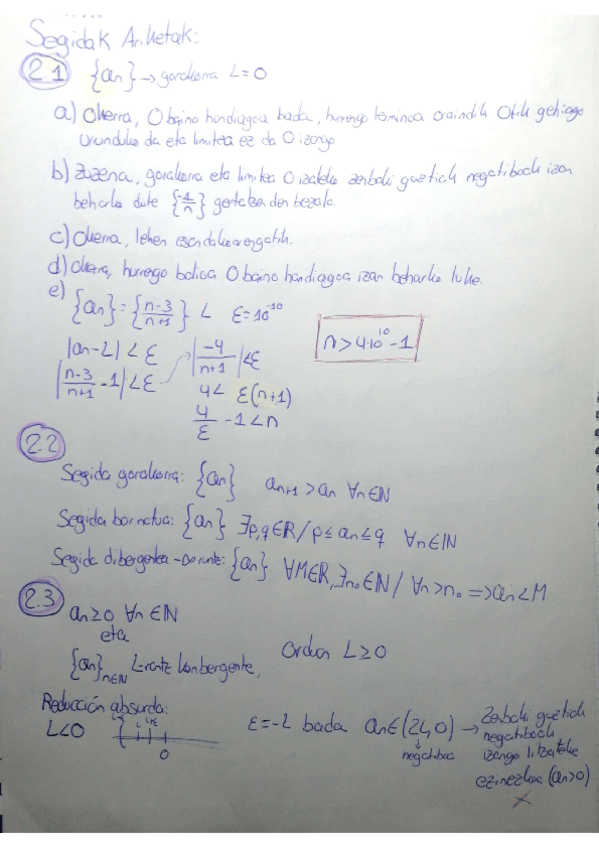 Segidak Ariketak:
2.1 {an} → gorakorra L=0
a) Okerra, 0 baino handiagoa bada, hurrengo terminoa oraindik 0tik gehiago
urunduko da eta limitea ez da 0 izango
b) Zuzena, gorakorra eta limitea 0 izateko zenbaki guztiak negatiboak izan
beharko dute {-1/n} gertatzen den bezala.
c) Okerra, lehen esandakoarengatik.
d) Okerra, hurrengo balioa 0 baino handiagoa izan beharko luke.
e) {an} = {n-3/n+1} L ε=10^-10
|an-L| < ε
|n-3/n+1 - 1| < ε → |-4/n+1| < ε
4 < ε(n+1)
4/ε - 1 < n
n > 4·10^10 - 1
2.2
Segida gorakorra: {an} an+1 > an ∀n∈N
Segida bornatua: {an} ∃p,q∈R / p ≤ an ≤ q ∀n∈N
Segida dibergentea -∞ runtz: {an} ∀M∈R, ∃n₀∈N / ∀n > n₀ => an < M
2.3
an ≥ 0 ∀n∈N
eta
{an}n∈N L-rantz konbergente,
Orduan L ≥ 0
Reducción absurda:
L<0
L-ε L L+ε
0
ε=-L bada an∈(2L,0) → Zenbaki guztiak
negatiboa
negatiboak
izango litzateke
ezinezkoa (an>0)